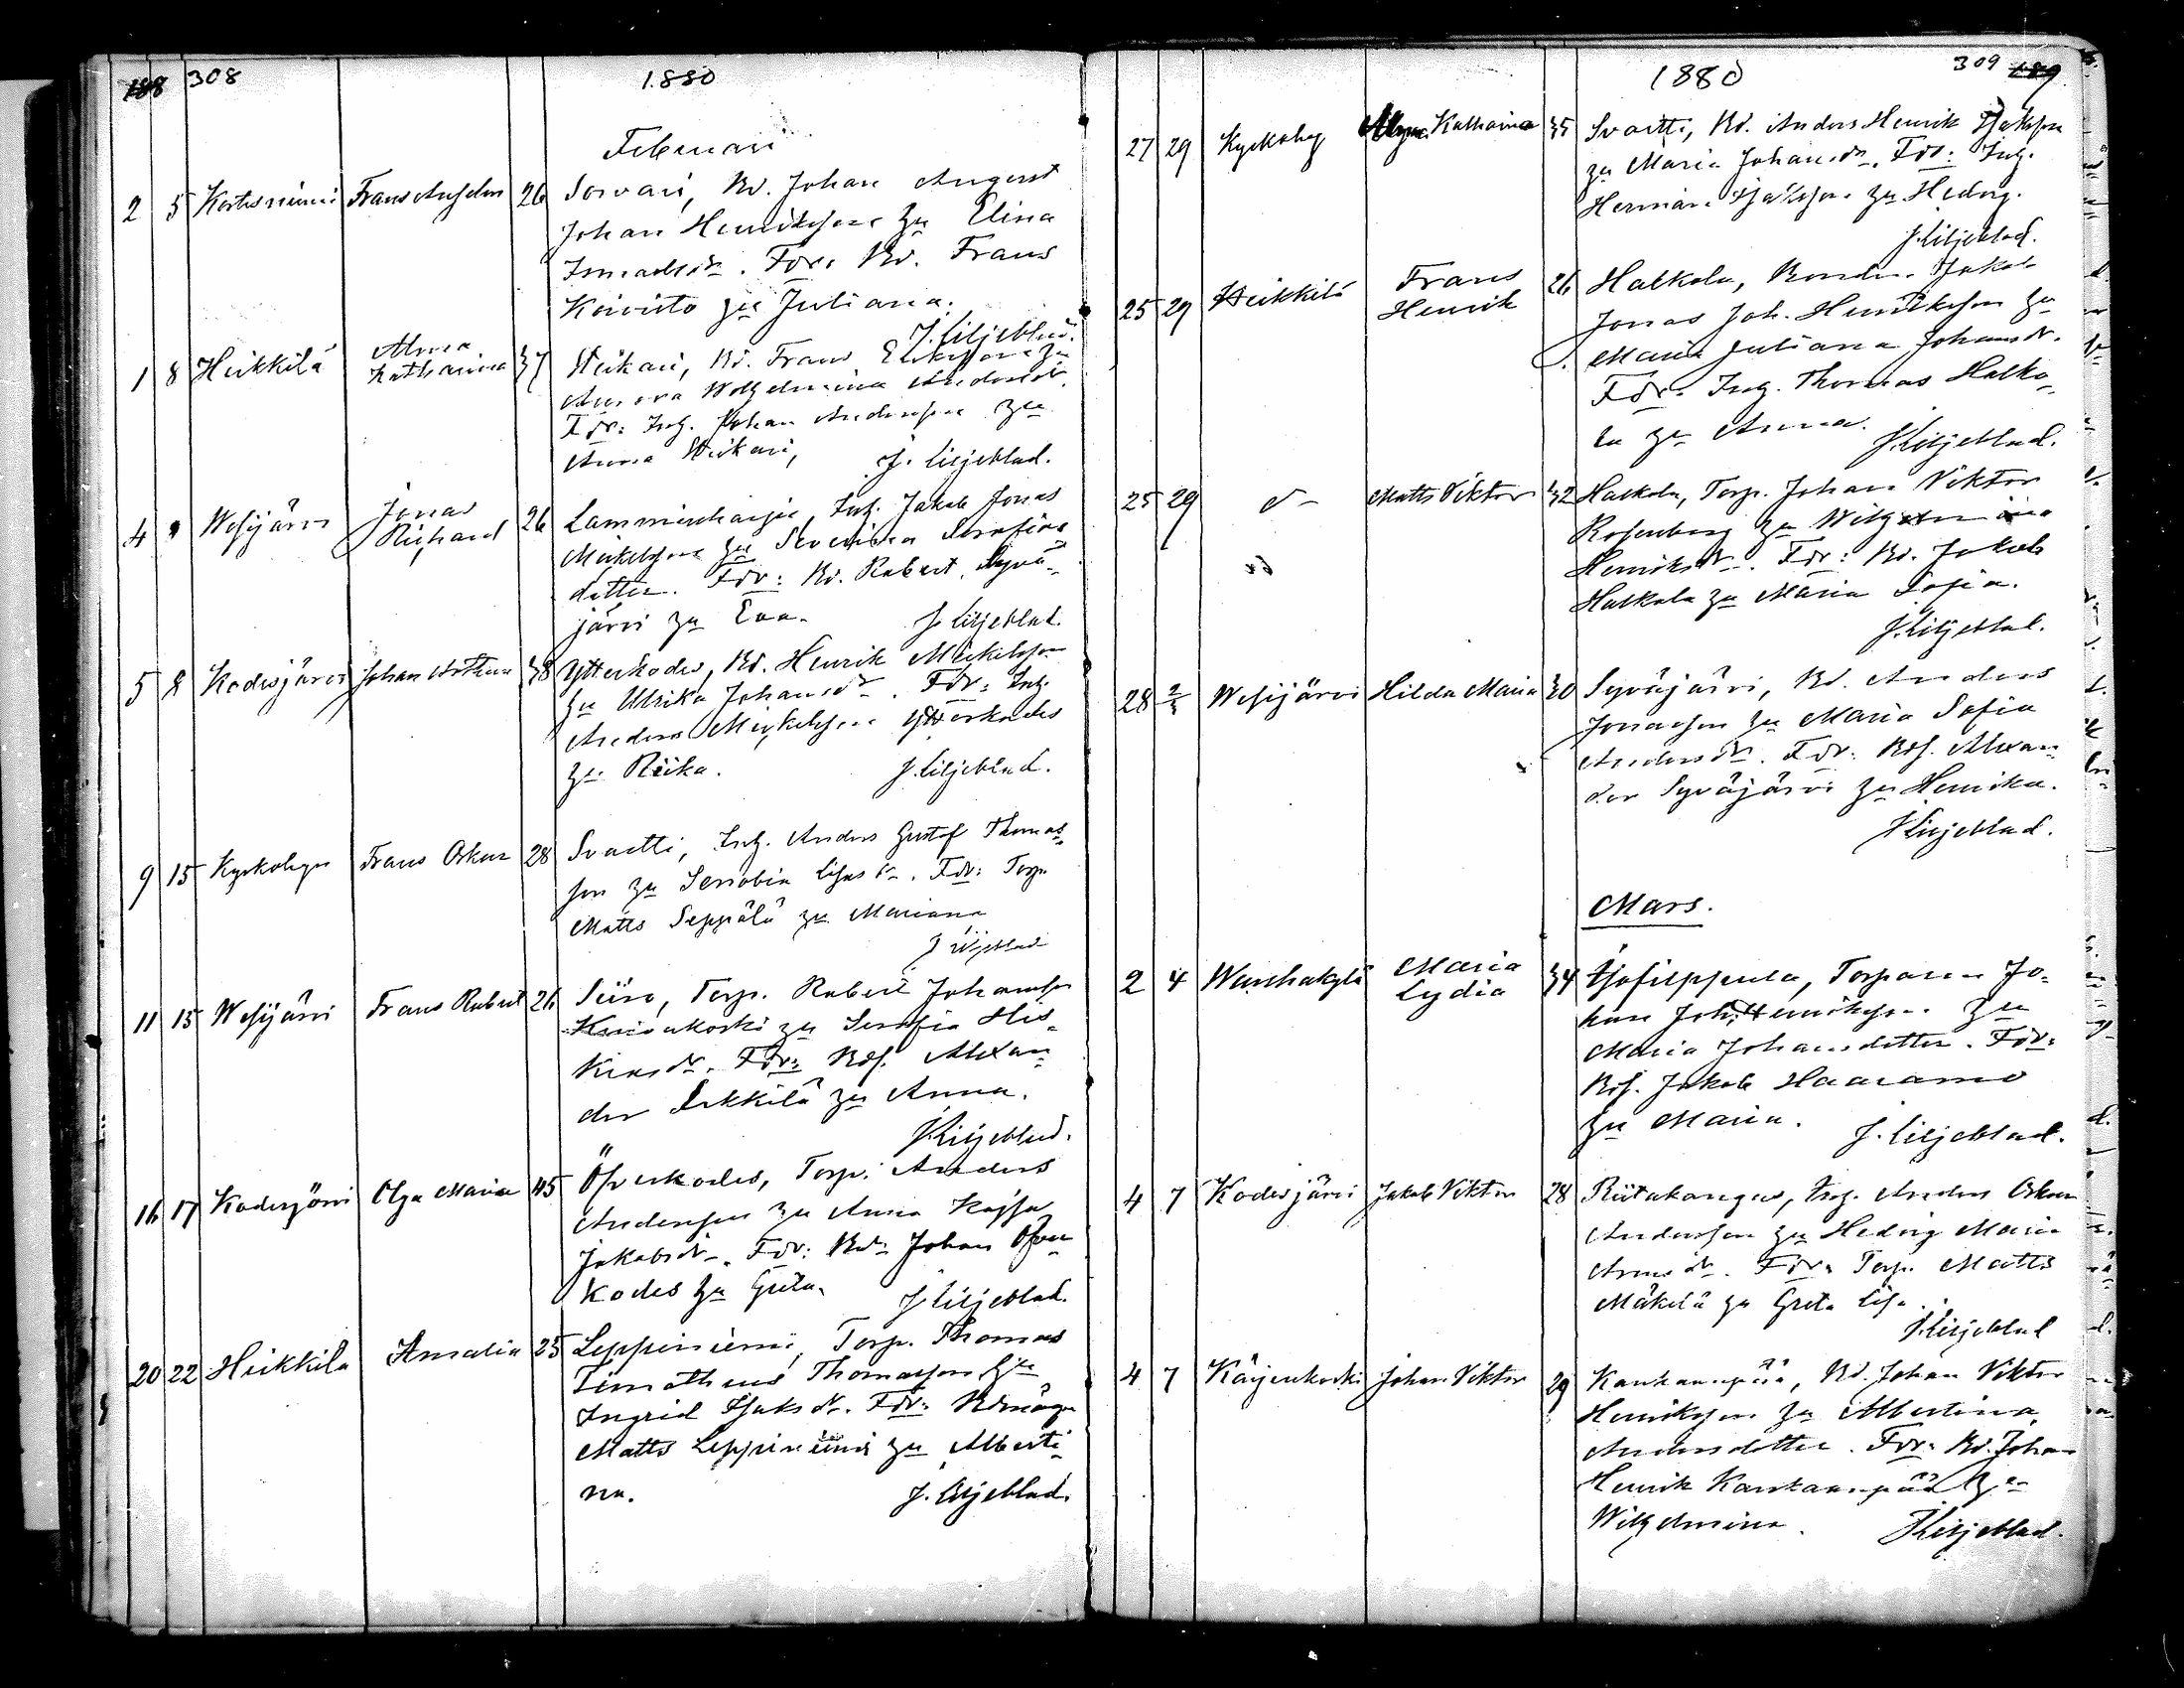 188 308 1880
Februari
2 5 Kortesniemi Frans Anselm 26 Sorvari, Bd. Johan August
Johan Henriksson hu Elina
Ismaelsdr. Fdr: Bd. Frans
Koivisto hu Juliana.
J. Liljeblad.
1 8 Heikkilä Alma Katharina 37 Heikari, Bd. Frans Eliasson hu
Amora Wilhelmina Andersdr.
Fdr: Inh. Johan Andersson hu
Anna Heikari, J. Liljeblad.
4 8 Wesijärvi Jonas Richard 26 Lamminharju, Inh. Jakob Jonas
Mickelsson hu Severina Serafia
dotter. Fdr: Bd. Robert Syvä-
järvi hu Eva. J. Liljeblad.
5 8 Kodesjärvi Johan Arthur 38 Ytterkodes, Bd. Henrik Mickelsson
hu Ulrika Johansdr. Fdr: Inh.
Anders Mickelsson Ytterkodes
hu Riika. J. Liljeblad.
9 15 Kyrkobyn Frans Oskar 28 Svartti, Inh. Anders Gustaf Thomas-
son hu Senobia Lisasdr. Fdr: Torp.
Matts Seppälä hu Mariana
J. Liljeblad
11 15 Wesijärvi Frans Robert 26 Siiro, Torp. Robert Johansson
Koivukoski hu Serafia Hes-
kiasdr. Fdr: Bds. Alexan
der Sikkilä hu Anna.
J. Liljeblad.
16 17 Kodesjärvi Olga Maria 45 Öfverkodes, Torp. Anders
Andersson hu Anna Kajsa
Jakobsdr. Fdr: Bd. Johan Öfver
Kodes hu Greta. J. Liljeblad.
20 22 Heikkilä Amalia 25 Leppiniemi, Torp. Thomas
Timotheus Thomasson hu
Ingrid Isaksdr. Fdr: Bdmåg
Matts Leppiniemi hu Alberti-
na. J. Liljeblad.
1880 309 189
27 29 Kyrkoby Katharina 35 Svartti, Bd. Anders Henrik Isaksson
hu Maria Johansdr. Fdr: Inh.
Herman Isaksson hu Hedvig.
J. Liljeblad.
25 29 Heikkilä Frans Henrik 26 Halkola, Bonden Jakob
Jonas Joh. Henriksson hu
Maria Juliana Johansdr.
Fdr: Inh. Thomas Halko-
la hu Anna. J. Liljeblad.
25 29 d- Matts Viktor 32 Halkola, Torp. Johan Viktor
Rosenberg hu Wilhelmina
Henriksdr. Fdr: Bd. Jakob
Halkola hu Maria Sofia.
J. Liljeblad.
28 2/3 Wesijärvi Hilda Maria 30 Syväjärvi, Bd. Anders
Jonasson hu Maria Sofia
Andersdr. Fdr: Bds. Alexan
der Syväjärvi hu Henrika.
J. Liljeblad.
Mars.
2 4 Wanhakylä Maria Lydia 34 Isofilppula, Torparen Jo-
han Joh. Henriksson hu
Maria Johansdotter. Fdr:
Bds. Jakob Haaramo
hu Maria. J. Liljeblad.
4 7 Kodesjärvi Jakob Viktor 28 Riitakangas, Inh. Anders Oskar
Andersson hu Hedvig Maria
Fdr: Torp. Matts
Mäkelä hu Greta Lisa.
J. Liljeblad
4 7 Kärjenkoski Johan Viktor 29 Kankaanpää, Bd. Johan Viktor
Henriksson hu Albertina
Andersdotter. Fdr: Bd. Johan
Henrik Kankaanpää hu
Wilhelmina. J. Liljeblad.